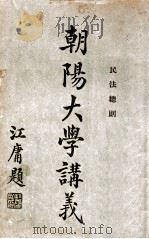 民法總則
朝陽大學講義
江庸題